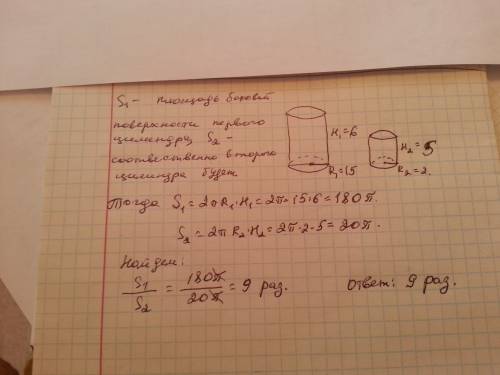 S₁ - площадь боковой
поверхности первого
цилиндра, S₂ -
соответственно второго
цилиндра будет
H₁=6
R₁=15
H₂=5
R₂=2.
Тогда S₁ = 2πR₁·H₁ = 2π·15·6 = 180π.
S₂ = 2πR₂·H₂ = 2π·2·5 = 20π.
Найдем:
S₁/S₂ = 180π/20π = 9 раз. Ответ: 9 раз.